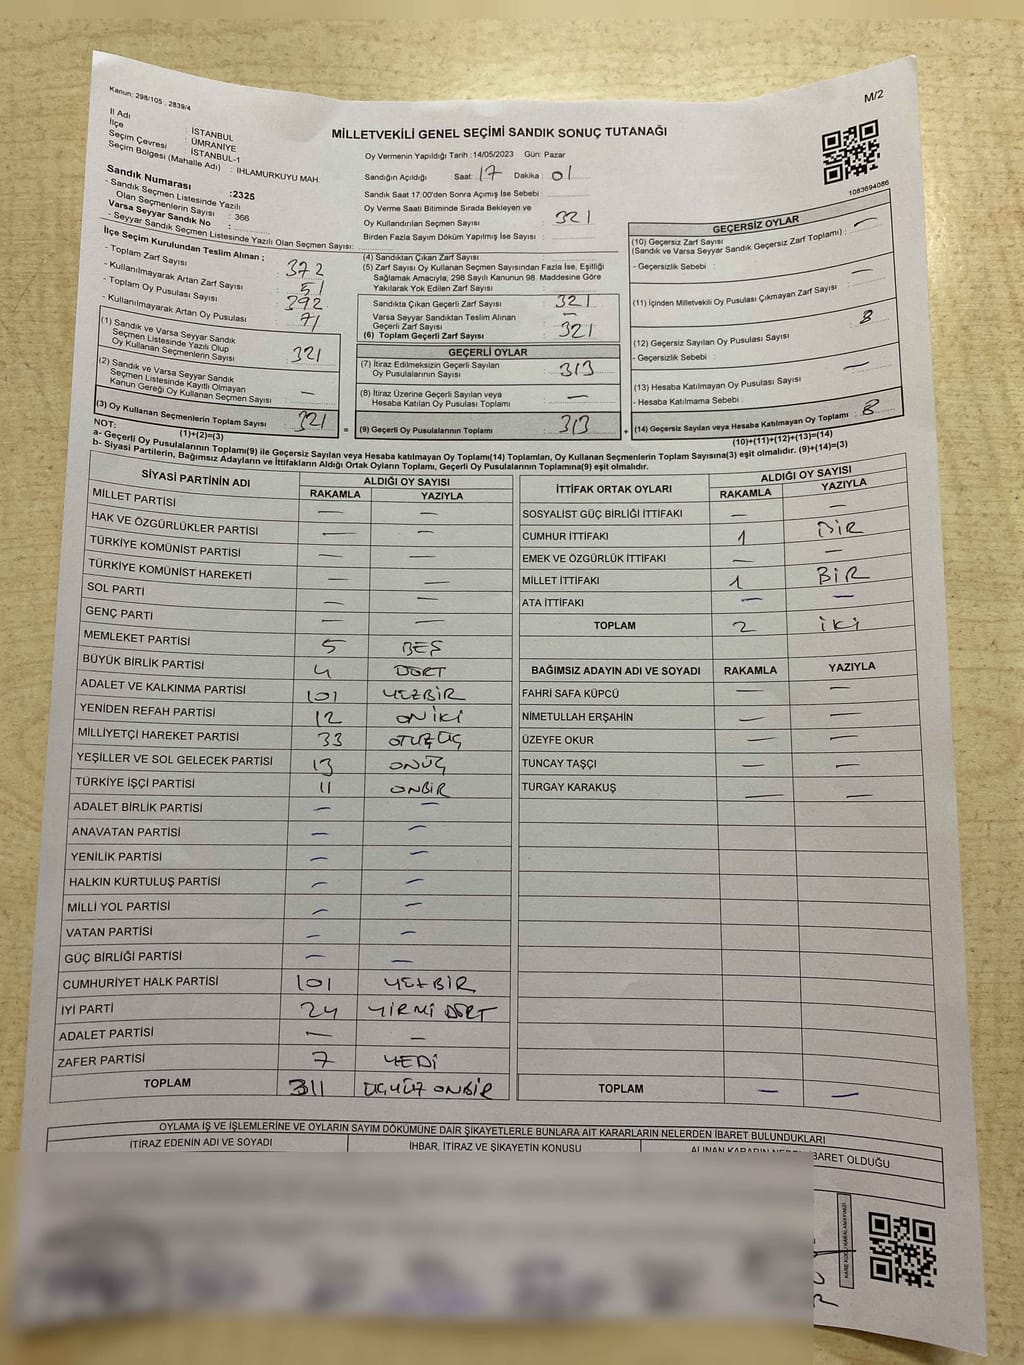 Kanun: 298/105 ; 2839/4
M/2
MİLLETVEKİLİ GENEL SEÇİMİ SANDIK SONUÇ TUTANAĞI
İl Adı : İSTANBUL
İlçe : ÜMRANİYE
Seçim Çevresi : İSTANBUL-1
Seçim Bölgesi (Mahalle Adı) : IHLAMURKUYU MAH.
Sandık Numarası :2325
- Sandık Seçmen Listesinde Yazılı
Olan Seçmenlerin Sayısı : 366
Varsa Seyyar Sandık No :
- Seyyar Sandık Seçmen Listesinde Yazılı Olan Seçmen Sayısı:
Oy Vermenin Yapıldığı Tarih :14/05/2023 Gün: Pazar
Sandığın Açıldığı Saat: 17 Dakika : 01
Sandık Saat 17:00'den Sonra Açımış İse Sebebi :
Oy Verme Saati Bitiminde Sırada Bekleyen ve
Oy Kullandırılan Seçmen Sayısı : 321
Birden Fazla Sayım Döküm Yapılmış İse Sayısı :
1083694086
İlçe Seçim Kurulundan Teslim Alınan ;
- Toplam Zarf Sayısı : 372
- Kullanılmayarak Artan Zarf Sayısı : 51
- Toplam Oy Pusulası Sayısı : 392
- Kullanılmayarak Artan Oy Pusulası : 71
(1) Sandık ve Varsa Seyyar Sandık
Seçmen Listesinde Yazılı Olup
Oy Kullanan Seçmenlerin Sayısı : 321
(2) Sandık ve Varsa Seyyar Sandık
Seçmen Listesinde Kayıtlı Olmayan
Kanun Gereği Oy Kullanan Seçmen Sayısı : —
(3) Oy Kullanan Seçmenlerin Toplam Sayısı : 321
(1)+(2)=(3)
(4) Sandıktan Çıkan Zarf Sayısı :
(5) Zarf Sayısı Oy Kullanan Seçmen Sayısından Fazla İse, Eşitliği
Sağlamak Amacıyla, 298 Sayılı Kanunun 98. Maddesine Göre
Yakılarak Yok Edilen Zarf Sayısı :
Sandıkta Çıkan Geçerli Zarf Sayısı : 321
Varsa Seyyar Sandıktan Teslim Alınan
Geçerli Zarf Sayısı : —
(6) Toplam Geçerli Zarf Sayısı : 321
GEÇERLİ OYLAR
(7) İtiraz Edilmeksizin Geçerli Sayılan
Oy Pusulalarının Sayısı : 313
(8) İtiraz Üzerine Geçerli Sayılan veya
Hesaba Katılan Oy Pusulası Toplamı : —
= (9) Geçerli Oy Pusulalarının Toplamı : 313 +
GEÇERSİZ OYLAR
(10) Geçersiz Zarf Sayısı
(Sandık ve Varsa Seyyar Sandık Geçersiz Zarf Toplamı) : —
- Geçersizlik Sebebi : —
(11) İçinden Milletvekili Oy Pusulası Çıkmayan Zarf Sayısı :
(12) Geçersiz Sayılan Oy Pusulası Sayısı : 8
- Geçersizlik Sebebi :
(13) Hesaba Katılmayan Oy Pusulası Sayısı : —
- Hesaba Katılmama Sebebi :
(14) Geçersiz Sayılan veya Hesaba Katılmayan Oy Toplamı : 8
(10)+(11)+(12)+(13)=(14)
NOT:
a- Geçerli Oy Pusulalarının Toplamı(9) ile Geçersiz Sayılan veya Hesaba katılmayan Oy Toplamı(14) Toplamları, Oy Kullanan Seçmenlerin Toplam Sayısına(3) eşit olmalıdır. (9)+(14)=(3)
b- Siyasi Partilerin, Bağımsız Adayların ve İttifakların Aldığı Ortak Oyların Toplamı, Geçerli Oy Pusulalarının Toplamına(9) eşit olmalıdır.
SİYASİ PARTİNİN ADI ALDIĞI OY SAYISI
RAKAMLA YAZIYLA
MİLLET PARTİSİ — —
HAK VE ÖZGÜRLÜKLER PARTİSİ — —
TÜRKİYE KOMÜNİST PARTİSİ — —
TÜRKİYE KOMÜNİST HAREKETİ — —
SOL PARTİ — —
GENÇ PARTİ — —
MEMLEKET PARTİSİ 5 BEŞ
BÜYÜK BİRLİK PARTİSİ 4 DÖRT
ADALET VE KALKINMA PARTİSİ 101 YÜZBİR
YENİDEN REFAH PARTİSİ 12 ONİKİ
MİLLİYETÇİ HAREKET PARTİSİ 33 OTUZÜÇ
YEŞİLLER VE SOL GELECEK PARTİSİ 13 ONÜÇ
TÜRKİYE İŞÇİ PARTİSİ 11 ONBİR
ADALET BİRLİK PARTİSİ — —
ANAVATAN PARTİSİ — —
YENİLİK PARTİSİ — —
HALKIN KURTULUŞ PARTİSİ — —
MİLLİ YOL PARTİSİ — —
VATAN PARTİSİ — —
GÜÇ BİRLİĞİ PARTİSİ — —
CUMHURİYET HALK PARTİSİ 101 YÜZBİR
İYİ PARTİ 24 YİRMİ DÖRT
ADALET PARTİSİ — —
ZAFER PARTİSİ 7 YEDİ
TOPLAM 311 ÜÇYÜZ ONBİR
İTTİFAK ORTAK OYLARI ALDIĞI OY SAYISI
RAKAMLA YAZIYLA
SOSYALİST GÜÇ BİRLİĞİ İTTİFAKI — —
CUMHUR İTTİFAKI 1 BİR
EMEK VE ÖZGÜRLÜK İTTİFAKI — —
MİLLET İTTİFAKI 1 BİR
ATA İTTİFAKI — —
TOPLAM 2 İKİ
BAĞIMSIZ ADAYIN ADI VE SOYADI RAKAMLA YAZIYLA
FAHRİ SAFA KÜPCÜ — —
NİMETULLAH ERŞAHİN — —
ÜZEYFE OKUR — —
TUNCAY TAŞÇI — —
TURGAY KARAKUŞ — —
TOPLAM — —
OYLAMA İŞ VE İŞLEMLERİNE VE OYLARIN SAYIM DÖKÜMÜNE DAİR ŞİKAYETLERLE BUNLARA AİT KARARLARIN NELERDEN İBARET BULUNDUKLARI
İTİRAZ EDENİN ADI VE SOYADI İHBAR, İTİRAZ VE ŞİKAYETİN KONUSU ALINAN KARARIN NEDEN İBARET OLDUĞU